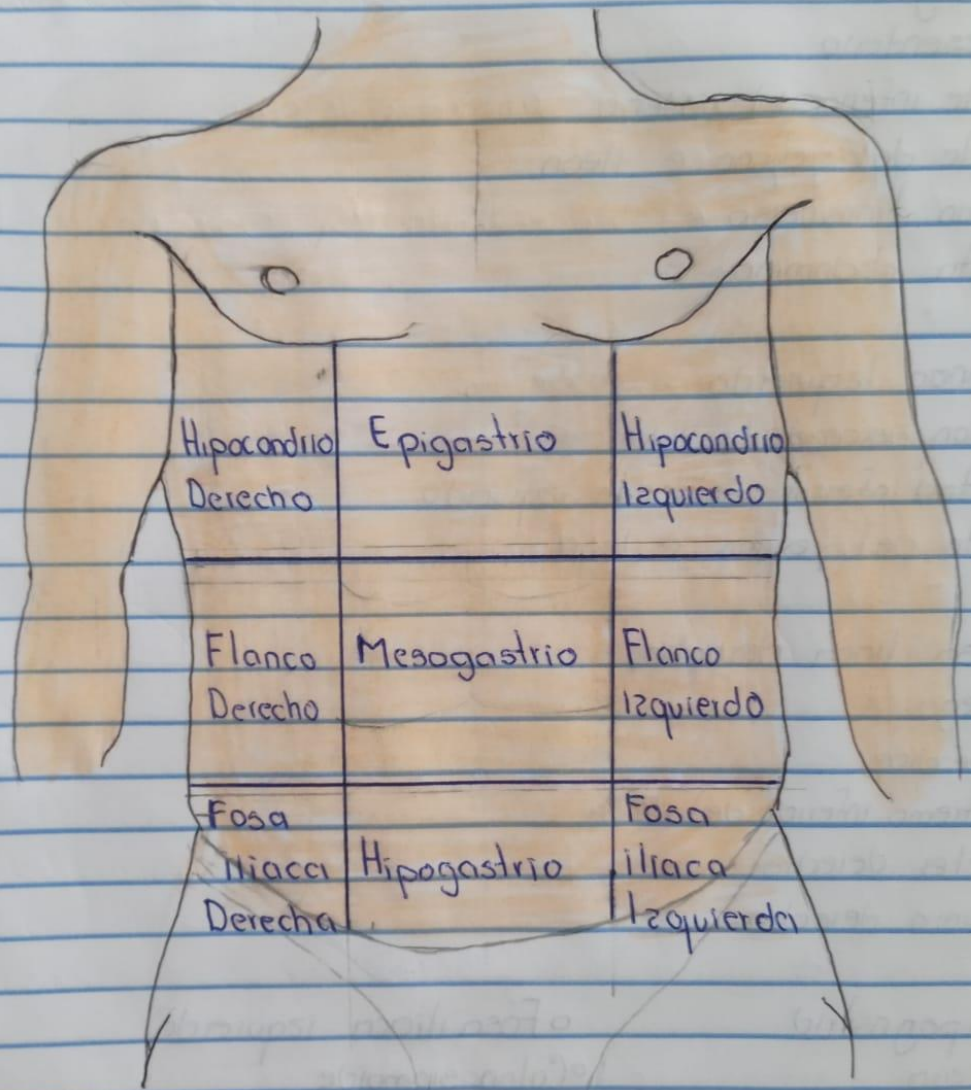 Hipocondrio
Derecho
Epigastrio
Hipocondrio
Izquierdo
Flanco
Derecho
Mesogastrio
Flanco
Izquierdo
Fosa
iliaca
Derecha
Hipogastrio
Fosa
iliaca
Izquierda